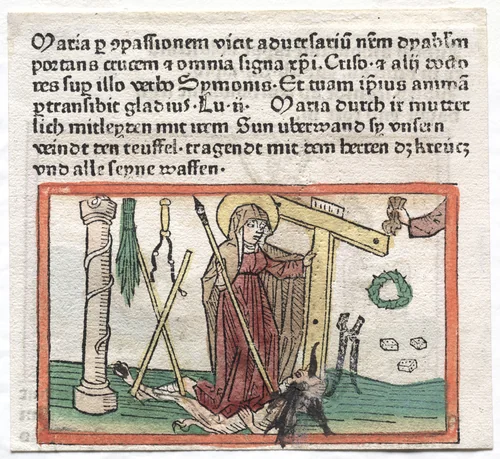 Maria ꝑ ꝯpassionem vicit aduersariū nr̄m dyabl̄m
portans crucem ⁊ omnia signa xp̄i. Criso. ⁊ alij docto
res sup̄ illo verbo Symonis. Et tuam ip̄ius animā
ꝑtransibit gladius. Lu. ii. Maria durch ir mutter
lich mitleyden mit irem Sun uberwand sy vnsern
veindt den teuffel. tragendt mit dem herren dz kreücz
vnd alle seyne waffen.